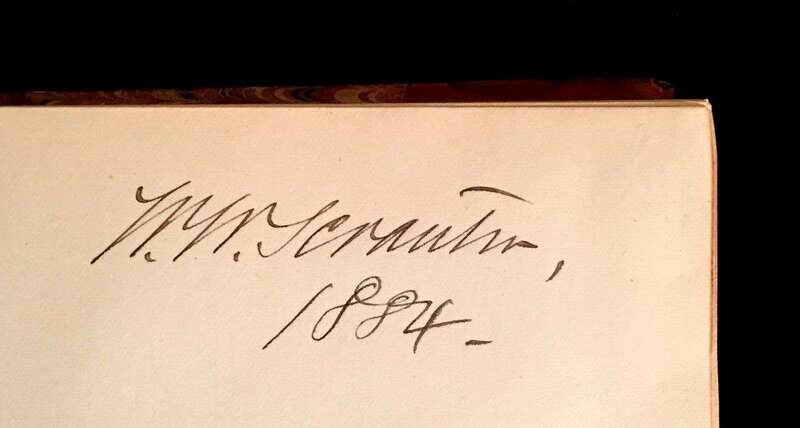 W. W. Scranton,
1884.